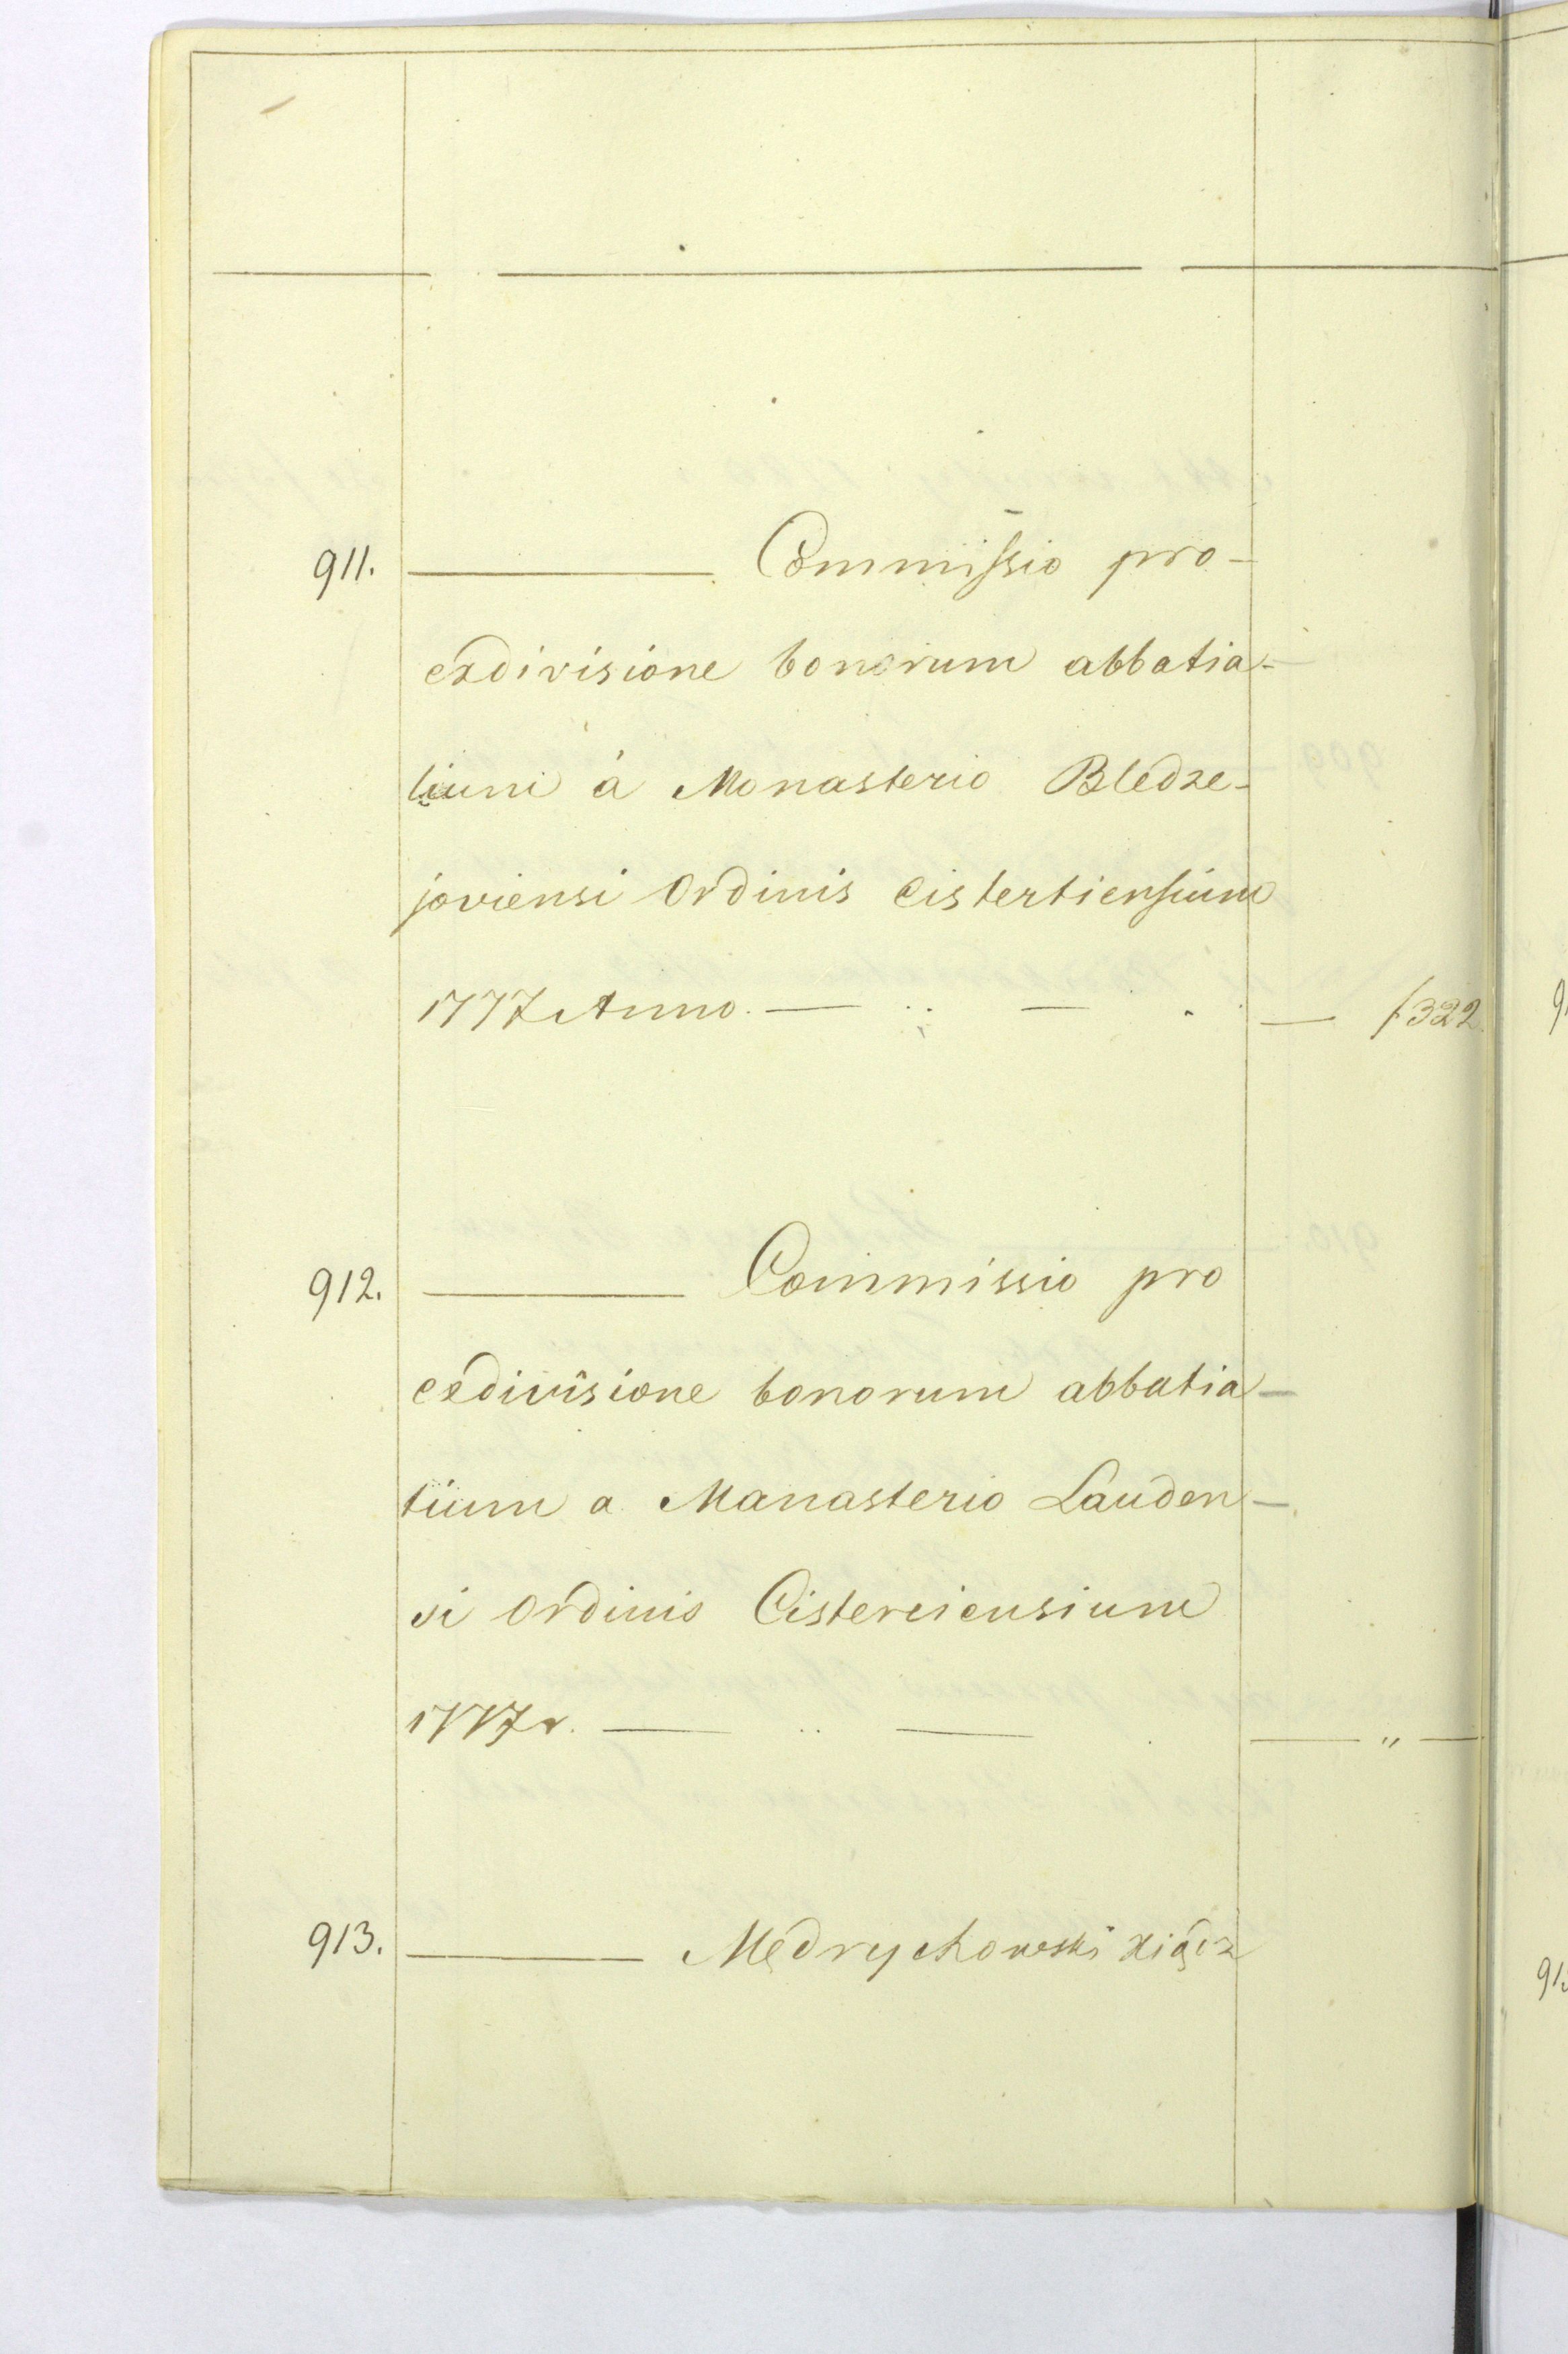 911. ——— Commissio pro-
exdivisione bonorum abbatia-
lium à Monasterio Bledze-
joviensi Ordinis Cistertiensium
1777 Anno. — .. — . — f 322.
912. ——— Commissio pro
exdivisione bonorum abbatia-
tium a Manasterio Lauden-
si Ordinis Cisterciensium
1777 r. — .. — — " —
913. ——— Mędrychowski Xiądz